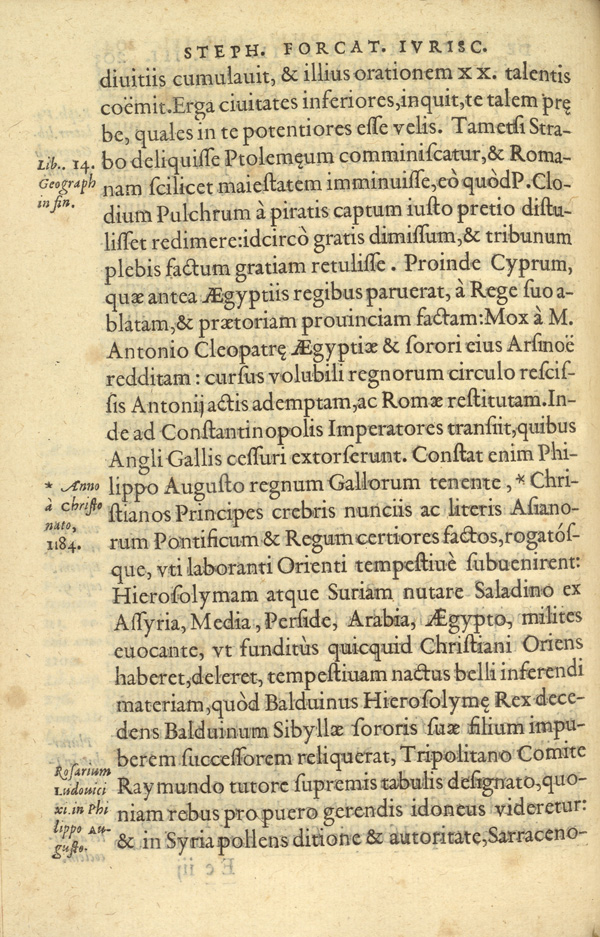 STEPH. FORCAT. IVRISC.
diuitiis cumulauit, & illius orationem XX. talentis
coëmit. Erga ciuitates inferiores, inquit, te talem prę
be, quales in te potentiores esse velis. Tametsi Stra-
bo deliquisse Ptolemęum comminiscatur, & Roma-
nam scilicet maiestatem imminuisse, eò quòd P. Clo-
dium Pulchrum à piratis captum iusto pretio distu-
lisset redimere: idcircò gratis dimissum, & tribunum
plebis factum gratiam retulisse. Proinde Cyprum,
quæ antea Ægyptiis regibus paruerat, à Rege suo a-
blatam, & prætoriam prouinciam factam: Mox à M.
Antonio Cleopatrę Ægyptiæ & sorori eius Arsinoë
redditam: cursus volubili regnorum circulo rescis-
sis Antonij actis ademptam, ac Romæ restitutam. In-
de ad Constantinopolis Imperatores transiit, quibus
Angli Gallis cessuri extorserunt. Constat enim Phi-
lippo Augusto regnum Gallorum tenente, * Chri-
stianos Principes crebris nunciis ac literis Asiano-
rum Pontificum & Regum certiores factos, rogatós-
que, vti laboranti Orienti tempestiuè subuenirent:
Hierosolymam atque Suriam nutare Saladino ex
Assyria, Media, Perside, Arabia, Ægypto, milites
euocante, vt funditùs quicquid Christiani Oriens
haberet, deleret, tempestiuam nactus belli inferendi
materiam, quòd Balduinus Hierosolymę Rex dece-
dens Balduinum Sibyllæ sororis suæ filium impu-
berem successorem reliquerat, Tripolitano Comite
Raymundo tutore supremis tabulis designato, quo-
niam rebus pro puero gerendis idoneus videretur:
& in Syria pollens ditione & autoritate, Sarraceno-
Lib.. 14.
Geograph
in fin.
* Anno
à Christo
nato,
1184.
Rosarium
Ludouici
xi. in Phi
lippo Au-
gusto.